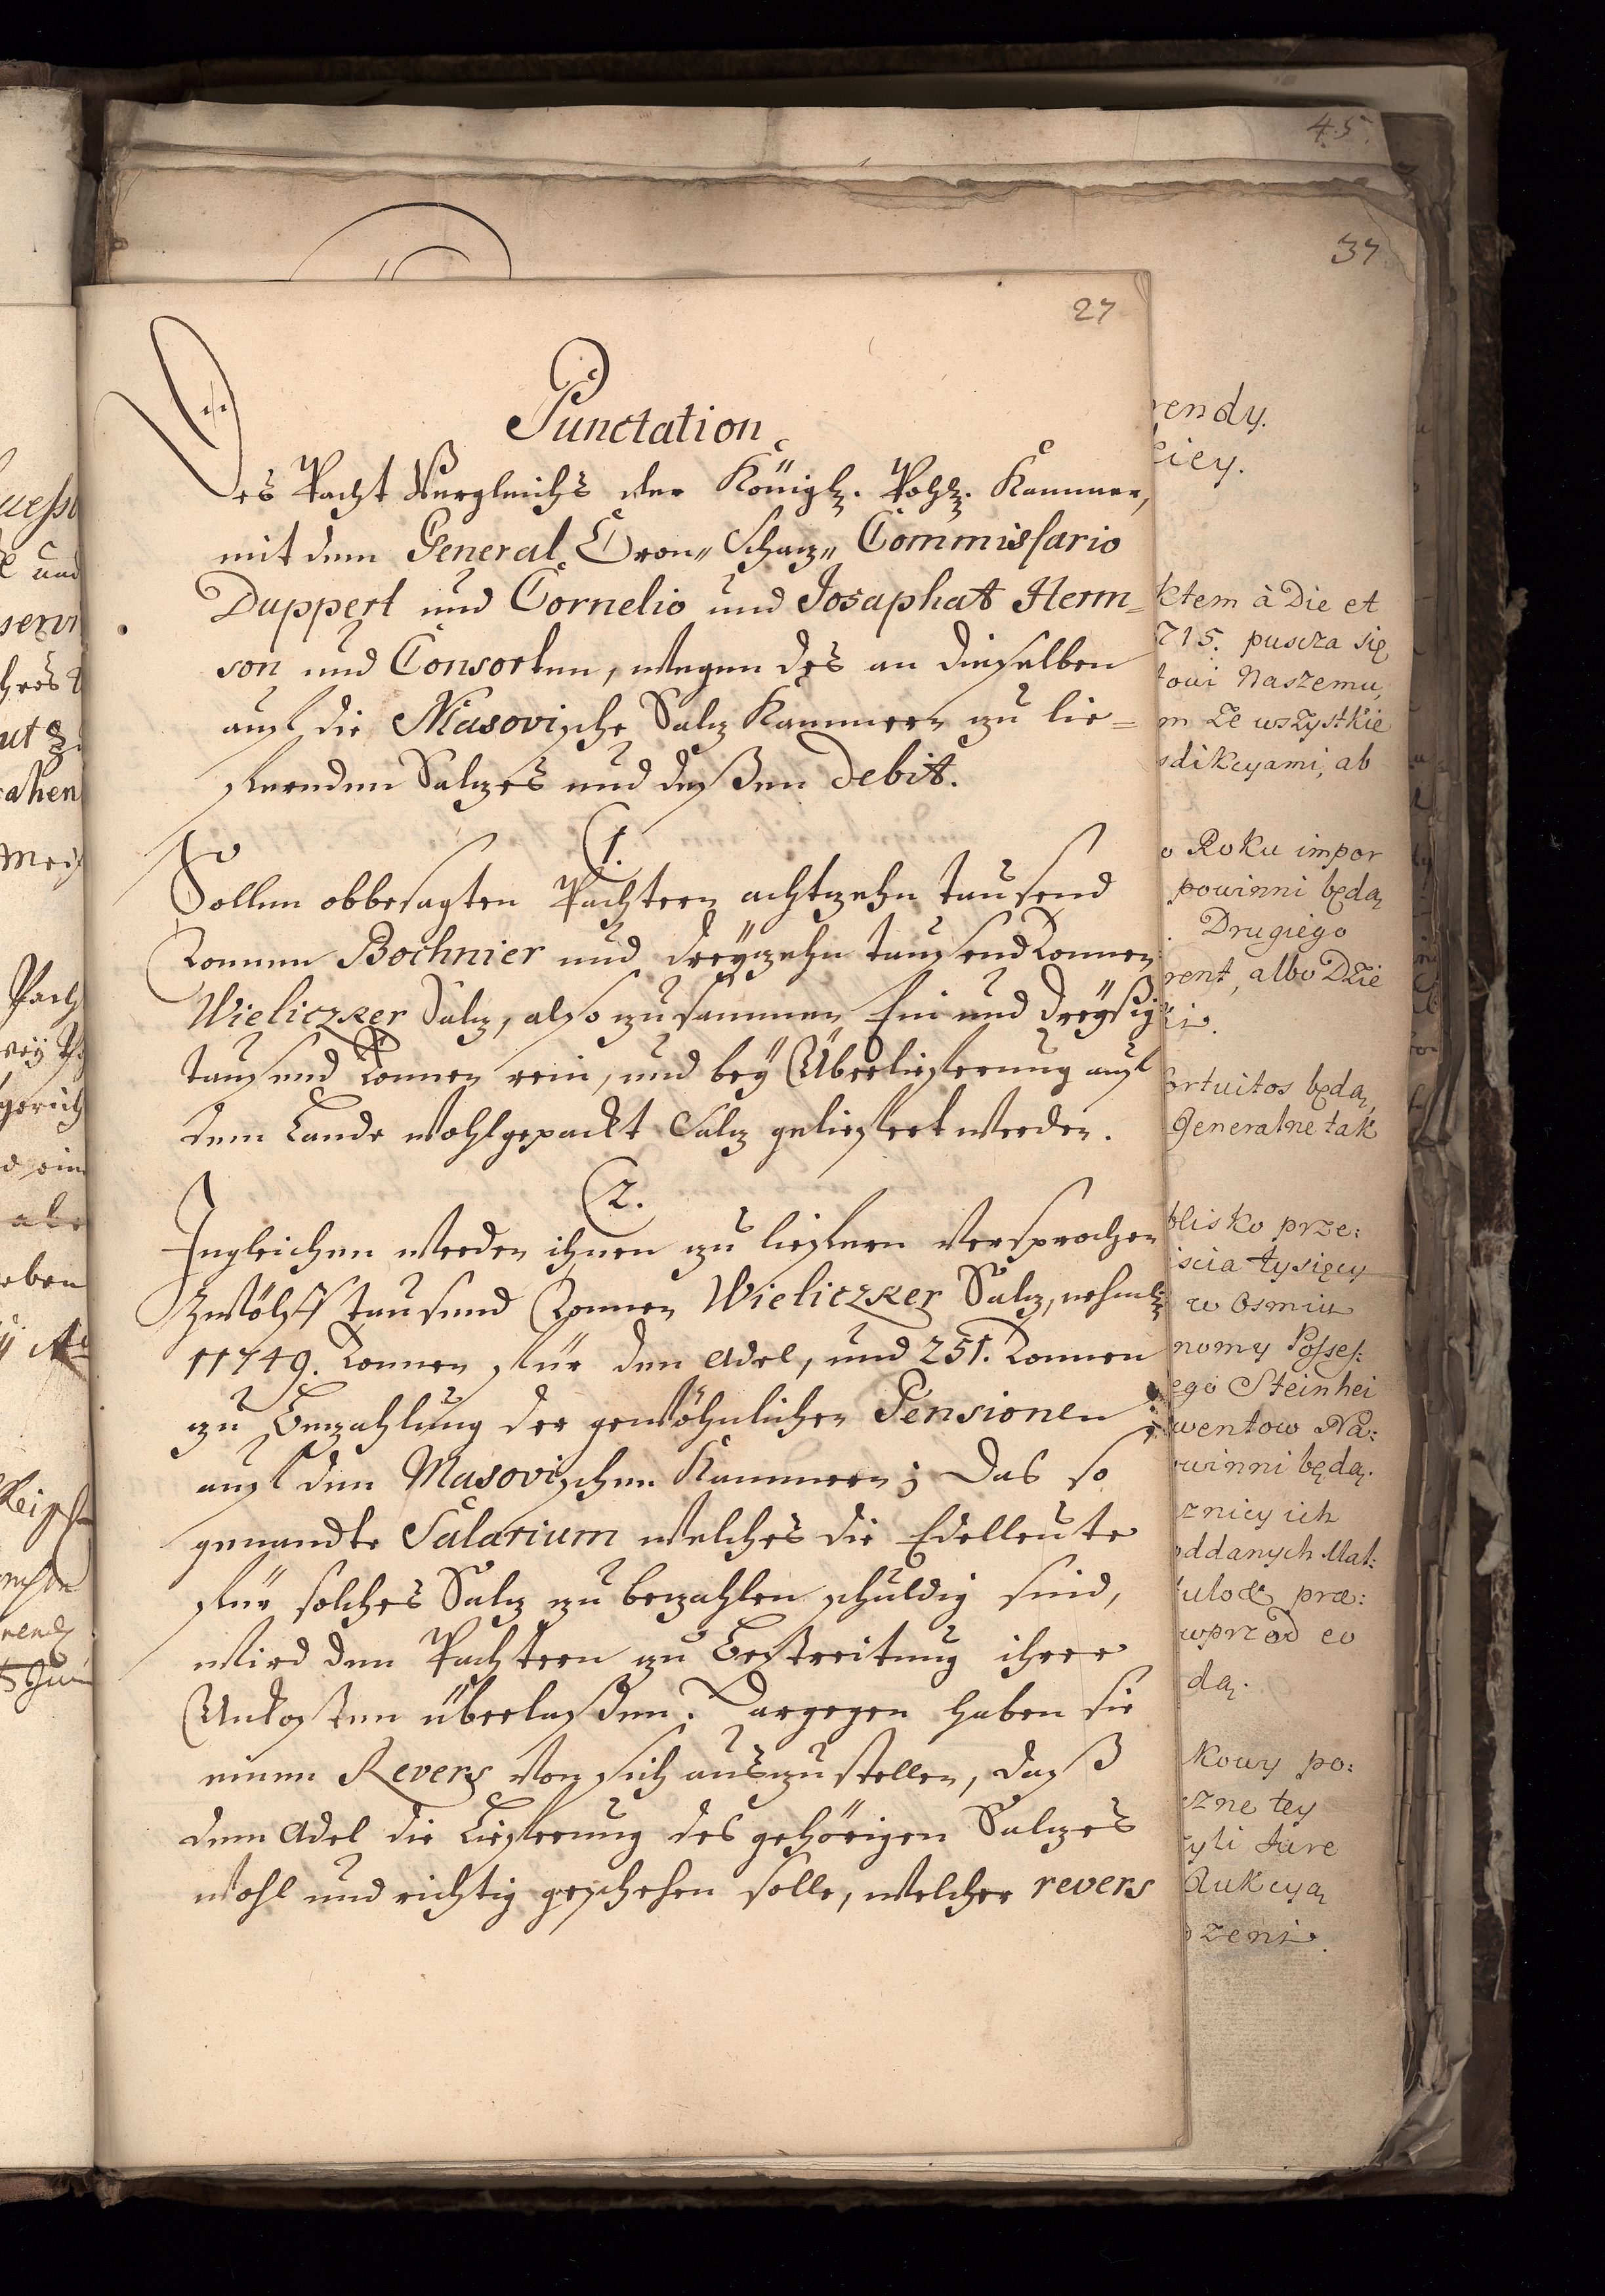 45.
37
27
Punctation
Des Pacht Vergleichs der Königl. Pohl. Kammer,
mit dem General Cron" Schaz" Commissario
Duppert und Cornelio und Josaphat Herm=
son und Consorten, wegen des an dieselben
auf die Masovische Salz Kammern zu lie=
fernden Salzes und deßen debit.
1.
Sollen obbesagten Pachtern achtzehn tausend
Tonnen Bochnier und dreyzehn tausend Tonnen
Wieliczker Salz, also zusammen Ein und dreysig
tausend Tonnen rein, und bey Überlieferung auf
dem Lande wohlgepackt Salz geliefert werden.
2.
Ingleichen werden ihnen zu liefern versprochen
Zwölff tausend Tonnen Wieliczker Salz, nehml.
11749. Tonnen für den Adel, und 251. Tonnen
zu Bezahlung der gewöhnlichen Pensionen
auf den Masovischen Kammern; Das so
genandte Salarium welches die Edelleute
für solches Salz zu bezahlen schuldig sind,
wird den Pachtern zu Bestreitung ihrer
Unkosten überlaßen. Dargegen haben sie
einen Revers von sich auszustellen, daß
dem Adel die Lieferung des gehörigen Salzes
wohl und richtig geschehen solle, welcher revers
rendy.
kiey.
ktem à Die et
715. puscza się
towi Naszemu,
m ze wszystkie
sdikcyami, ab
o Roku impor
powinni będą
Drugiego
rent, albo Dzie
ortuitos będą,
Generalne tak
blisko prze:
iscia tysięcy
w Osmiu
nomy Posses:
ego Steinhei
wentow Na:
owinni będą.
znicy ich
oddanych Mat:
præ:
wprzod ew
dą.
kowy po:
szne tey
yli Jure
Aukcyą
ozeni.